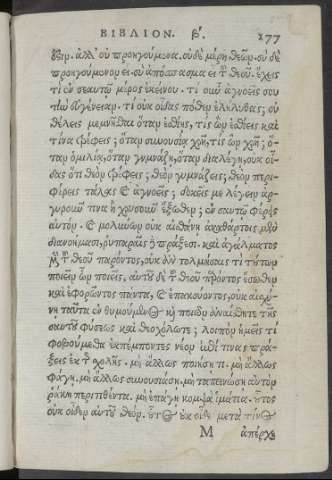 ΒΙΒΛΙΟΝ. β΄. 277
ἔργα. ἀλλ' οὐ προηγούμενα. οὐδὲ μέρη θεῶν. σὺ δὲ
προηγούμενον εἶ. σὺ ἀπόσπασμα εἶ τοῦ θεοῦ. ἔχεις
τὶ ἐν σεαυτῷ μέρος ἐκείνου. τί οὖν ἀγνοεῖς σου
τὴν συγγένειαν. τί οὐκ οἶδας πόθεν ἐλήλυθας; οὐ
θέλεις μεμνῆσθαι ὅταν ἐσθίῃς, τίς ὢν ἐσθίεις καὶ
τίνα τρέφεις; ὅταν συνουσίᾳ χρῇ, τίς ὢν χρῇ; ὅ-
ταν ὁμιλίᾳ, ὅταν γυμνάζῃ, ὅταν διαλέγῃ, οὐκ οἶ-
δας ὅτι θεὸν τρέφεις; θεὸν γυμνάζεις; θεὸν περι-
φέρεις τάλας καὶ ἀγνοεῖς; δοκεῖς με λέγειν ἀρ-
γυροῦν τινα ἢ χρυσοῦν ἔξωθεν; ἐν σαυτῷ φέρεις
αὐτόν. καὶ μολύνων οὐκ αἰσθάνῃ ἀκαθάρτοις μὲν
διανοήμασι, ῥυπαραῖς δὲ πράξεσι. καὶ ἀγάλματος
μὲν τοῦ θεοῦ παρόντος, οὐκ ἂν τολμήσαις τι τούτων
ποιεῖν ὧν ποιεῖς. αὐτοῦ δὲ τοῦ θεοῦ παρόντος ἔσωθεν
καὶ ἐφορῶντος πάντα, καὶ ἐπακούοντος, οὐκ αἰσχύ-
νῃ ταῦτα ἐνθυμούμενος καὶ ποιῶν ἀναίσθητε τῆς
σαυτοῦ φύσεως καὶ θεοχόλωτε; λοιπὸν ἡμεῖς τί
φοβούμεθα ἐκπέμποντες νέον ἐπί τινας πρά-
ξεις ἐκ τῆς σχολῆς. μὴ ἄλλως ποιήσῃ τι. μὴ ἄλλως
φάγῃ. μὴ ἄλλως συνουσιάσῃ. μὴ ταπεινώσῃ αὐτὸν
ῥάκη περιτεθέντα. μὴ ἐπάρῃ κομψὰ ἱμάτια. οὗτος
οὐκ οἶδεν αὐτοῦ θεόν. οὗτος οὐκ οἶδε μετὰ τίνος
Μ ἀπέρχε